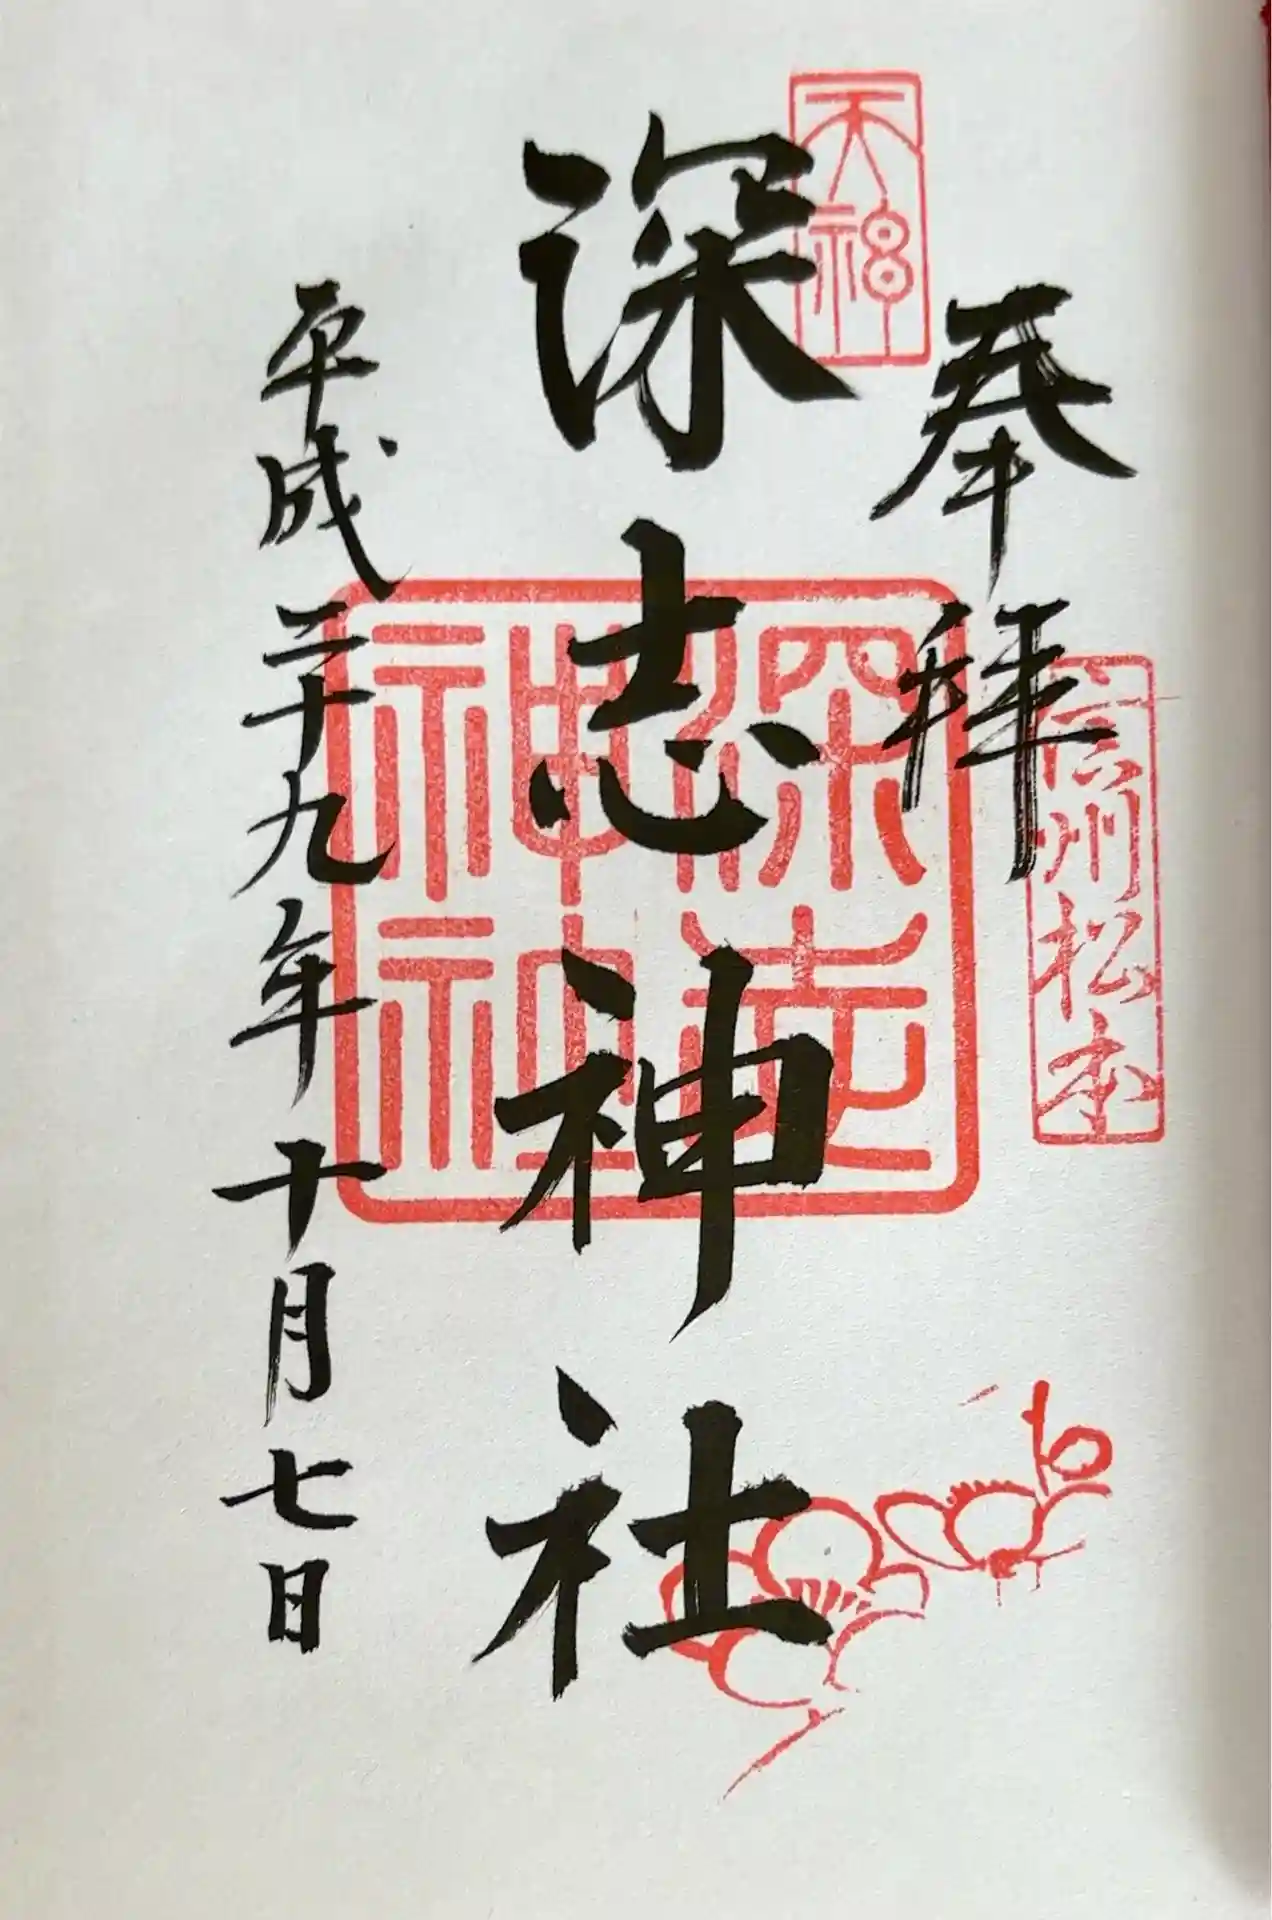 奉拝
信州松本
天神
深志神社
深志神社
平成二十九年十月七日